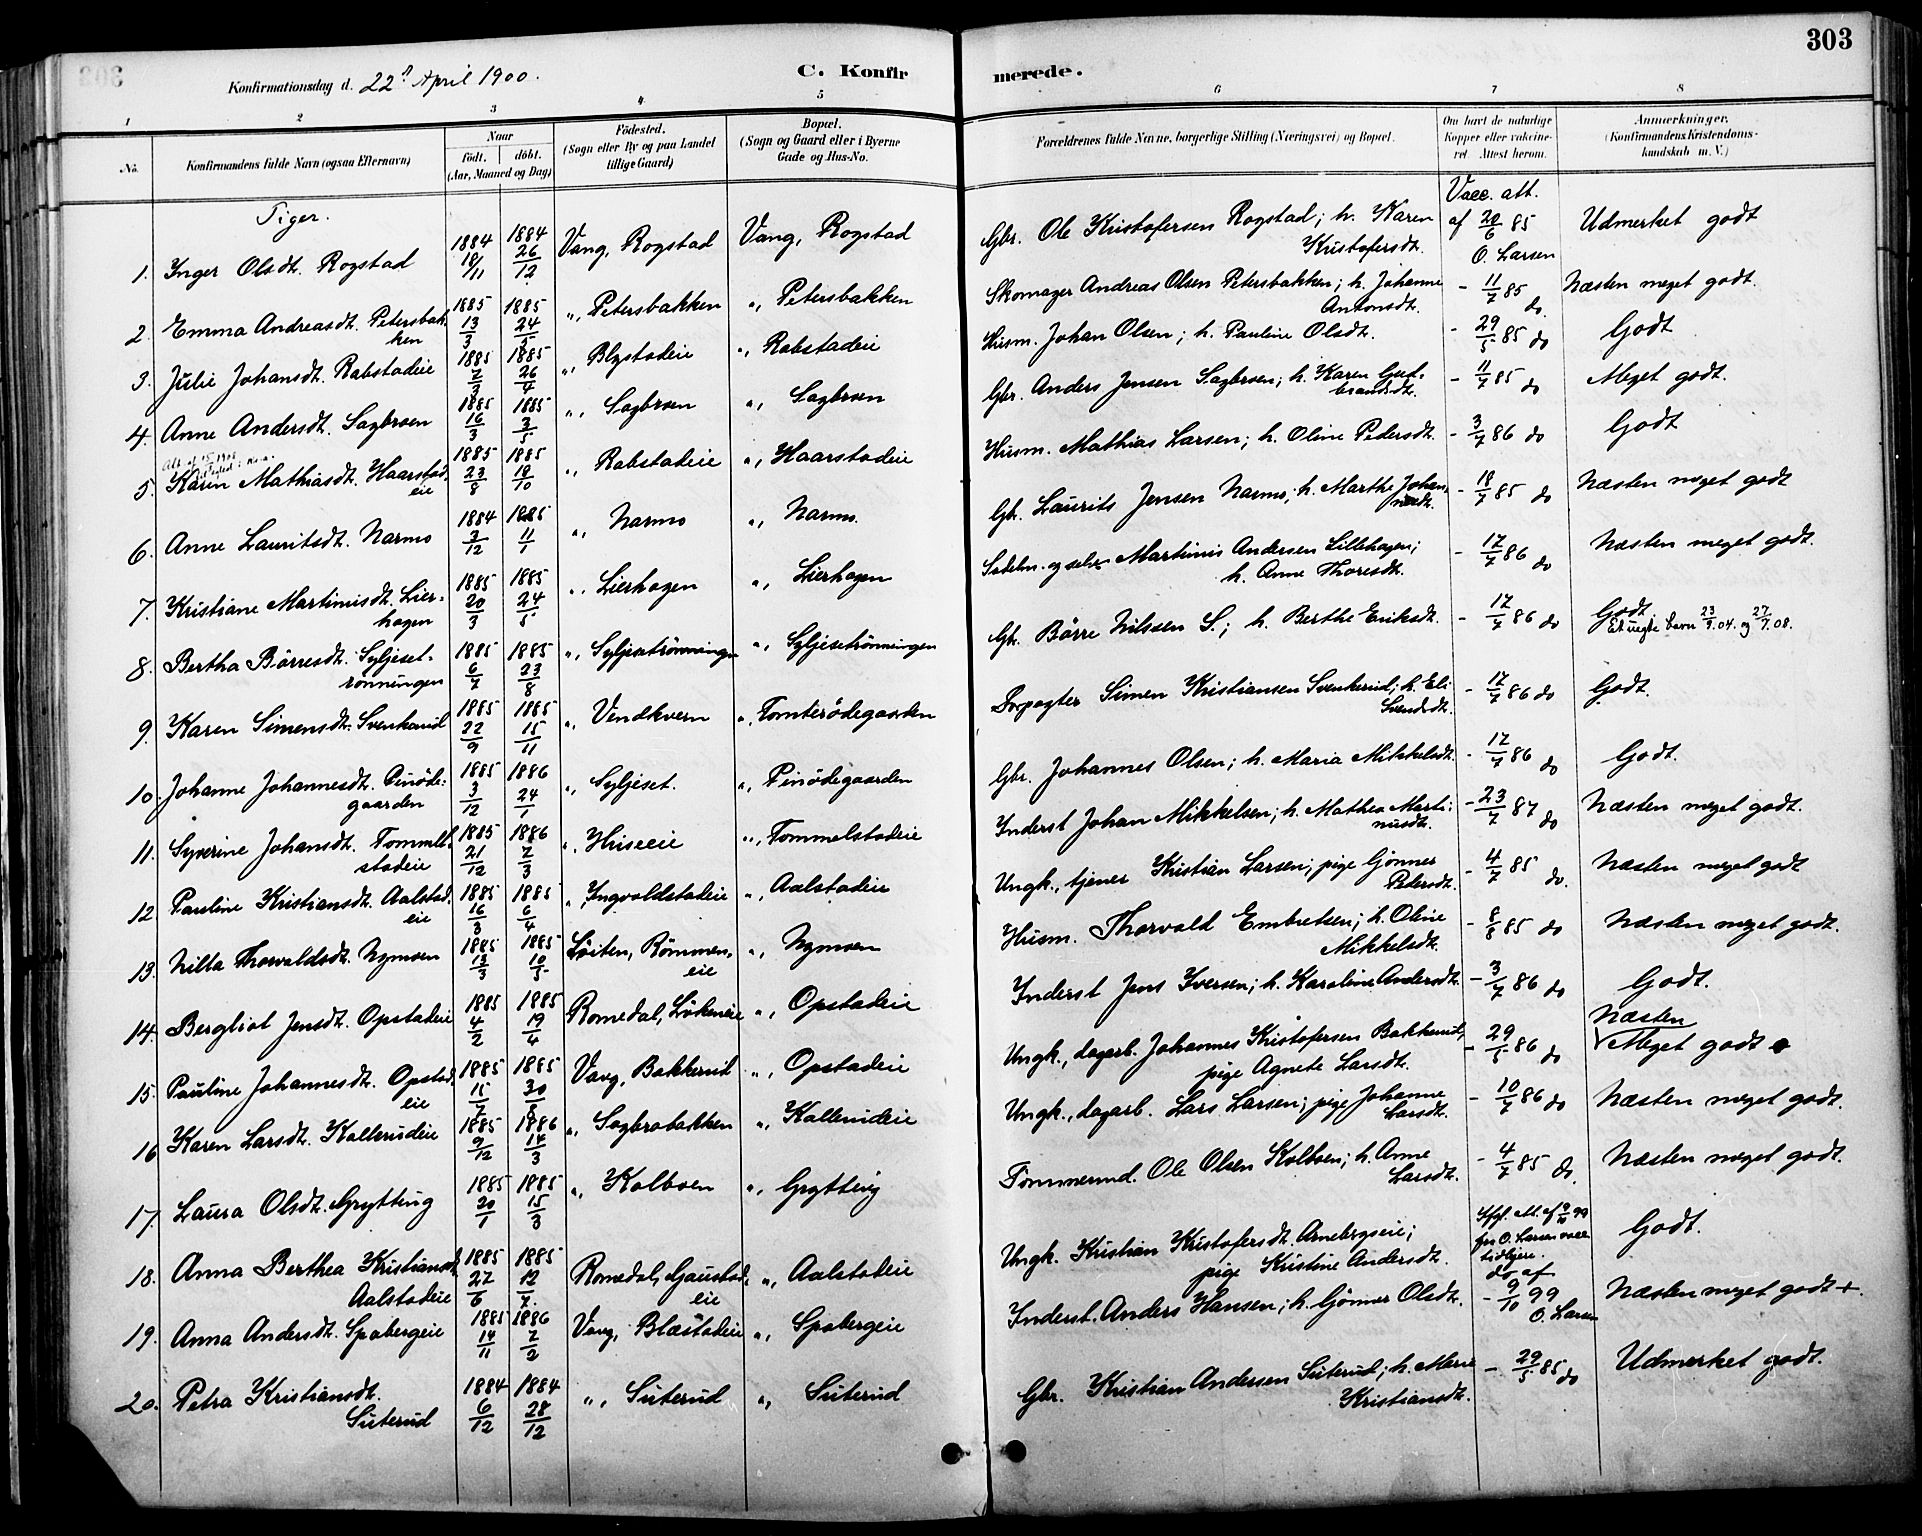 303
Konfirmationsdag d. 22d April 1900.
C. Konfirmerede.
1 2 3 4 5 6 7 8
No. Konfirmandens fulde Navn (ogsaa Efternavn) Naar födt. döbt. (Aar, Maaned og Dag) Födested. (Sogn eller By og paa Landet tillige Gaard) Bopæl. (Sogn og Gaard eller i Byerne Gade og Hus-No. Forældrenes fulde Navne, borgerlige Stilling (Næringsvei) og Bopæl. Om havt de naturlige Kopper eller vakcineret. Attest herom. Anmærkninger. (Konfirmandens Kristendomskundskab m. V.)
Piger.
1. Inger Olsdt. Rogstad 1884 18/11 1884 26/12 Vang, Rogstad Vang, Rogstad Gbr. Ole Kristofersen Rogstad; h. Karen Kristofersdt. Vacc. att. af 20/6 85 O. Larsen Udmerket godt
2. Emma Andreasdt. Petersbakken 1885 13/3 1885 24/5 „ Petersbakken „ Petersbakken Skomager Andreas Olsen Petersbakken; h. Johanne Antonsdt. - 11/7 85 do. Næsten meget godt.
3. Julie Johansdt. Rabstadeie 1885 7/3 1885 26/4 „ Blystadeie „ Rabstadeie Husm. Johan Olsen; h. Pauline Olsdt. - 29/5 85 do Godt
4. Anne Andersdt. Sagbroen 1885 16/3 1885 3/5 „ Sagbroen „ Sagbroen Gbr. Anders Jensen Sagbroen; h. Karen Gudbrandsdt. - 11/7 85 do Meget godt.
5. Karen Mathiasdt. Haarstadeie 1885 23/8 1885 18/10 „ Rabstadeie „ Haarstadeie Husm. Mathias Larsen; h. Oline Pedersdt. - 3/7 86 do Godt
6. Anne Lauritsdt. Narmo 1884 3/12 1885 11/1 „ Narmo „ Narmo. Gbr. Laurits Jensen Narmo; h. Marthe Johannesdt. - 18/7 85 do Næsten meget godt
7. Kristiane Martinusdt. Lierhagen 1885 20/3 1885 24/5 „ Lierhagen „ Lierhagen Sadelm. og selv. Martinus Andersen Lillehagen; h. Anne Thoresdt. - 17/7 86 do Næsten meget godt.
8. Bertha Börresdt. Syljesetrönningen 1885 6/7 1885 23/8 „ Syljesetrönningen „ Syljesetrönningen Gbr. Börre Nilssen S.; h. Berthe Eriksdt. - 17/7 86 do Godt. Et uegte barn 23/9.04. og 27/7.08.
9. Karen Simensdt. Svenkerud 1885 22/9 1885 15/11 „ Vindkvern „ Tomterödegaarden Forpagter Simen Kristiansen Svenkerud; h. Eli Svendsdt. - 17/7 86 do Godt.
10. Johanne Johannesdt. Pinödegaarden 1885 3/12 1886 24/1 „ Syljeset. „ Pinödegaarden Gbr. Johannes Olsen; h. Maria Mikkelsdt. - 17/7 86 do Godt.
11. Syverine Johansdt. Tommelstadeie 1885 21/12 1886 7/3 „ Huseeie „ Tommelstadeie Inderst Johan Mikkelsen; h. Mathea Martinusdt. - 23/7 87 do Næsten meget godt.
12 Pauline Kristiansdt. Aalstadeie 1885 16/3 1885 6/4 „ Ingvoldstadeie „ Aalstadeie Ungk., tjener Kristian Larsen; pige Gjönner Petersdt. - 4/7 85 do. Næsten meget godt
13. Nilla Thorvaldsdt. Nymoen 1885 13/3 1885 10/5 Löiten, Römmeneie „ Nymoen Husm. Thorvald Embretsen; h. Oline Mikkelsdt. - 8/8 85 do Næsten meget godt.
14. Bergliot Jensdt. Opstadeie 1885 4/2 1885 19/4 Romedal, Lökeneie „ Opstadeie Inderst Jens Iversen; h. Karoline Andersdt. - 3/7 86 do Godt.
15. Pauline Johannesdt. Opstadeie 1885 15/7 1885 30/8 Vang, Bakkerud „ Opstadeie Ungk., dagarb. Johannes Kristofersen Bakkerud; pige Agnete Larsdt. - 29/5 86 do Næsten Meget godt
16 Karen Larsdt. Kollerudeie 1885 9/12 1886 14/3 „ Sagbrobakken „ Kollerudeie Ungk., dagarb. Lars Larsen; pige Johanne Larsdt. - 10/7 86 do Næsten meget godt.
17. Laura Olsdt. Grytting 1885 20/1 1885 15/3 „ Kolboen „ Grytting Tömmermd. Ole Olsen Kolboen; h. Anne Larsdt. - 4/7 85 do. Næsten meget godt.
18. Anna Berthea Kristiansdt. Aalstadeie 1885 27/6 1885 12/7. Romedal, Gaustadeie „ Aalstadeie Ungk. Kristian Kristofersdt. Arnebergseie; pige Kristine Andersdt. Ifgl. Att. af 9/10 99 fra O. Larsen vacc. tidligere. Godt.
19. Anna Andersdt. Spabergeie 1885 14/11 1886 7/2 Vang, Blæstadeie „ Spabergeie Inderst. Anders Hansen; h. Gjönner Olsdt. do af - 9/10 99 O. Larsen Næsten meget godt +.
20. Petra Kristiansdt. Suterud 1884 6/12 1884 28/12 „ Suterud „ Suterud Gbr. Kristian Andersen Suterud; h. Marie Kristiansdt. - 29/5 85 do Udmerket godt.